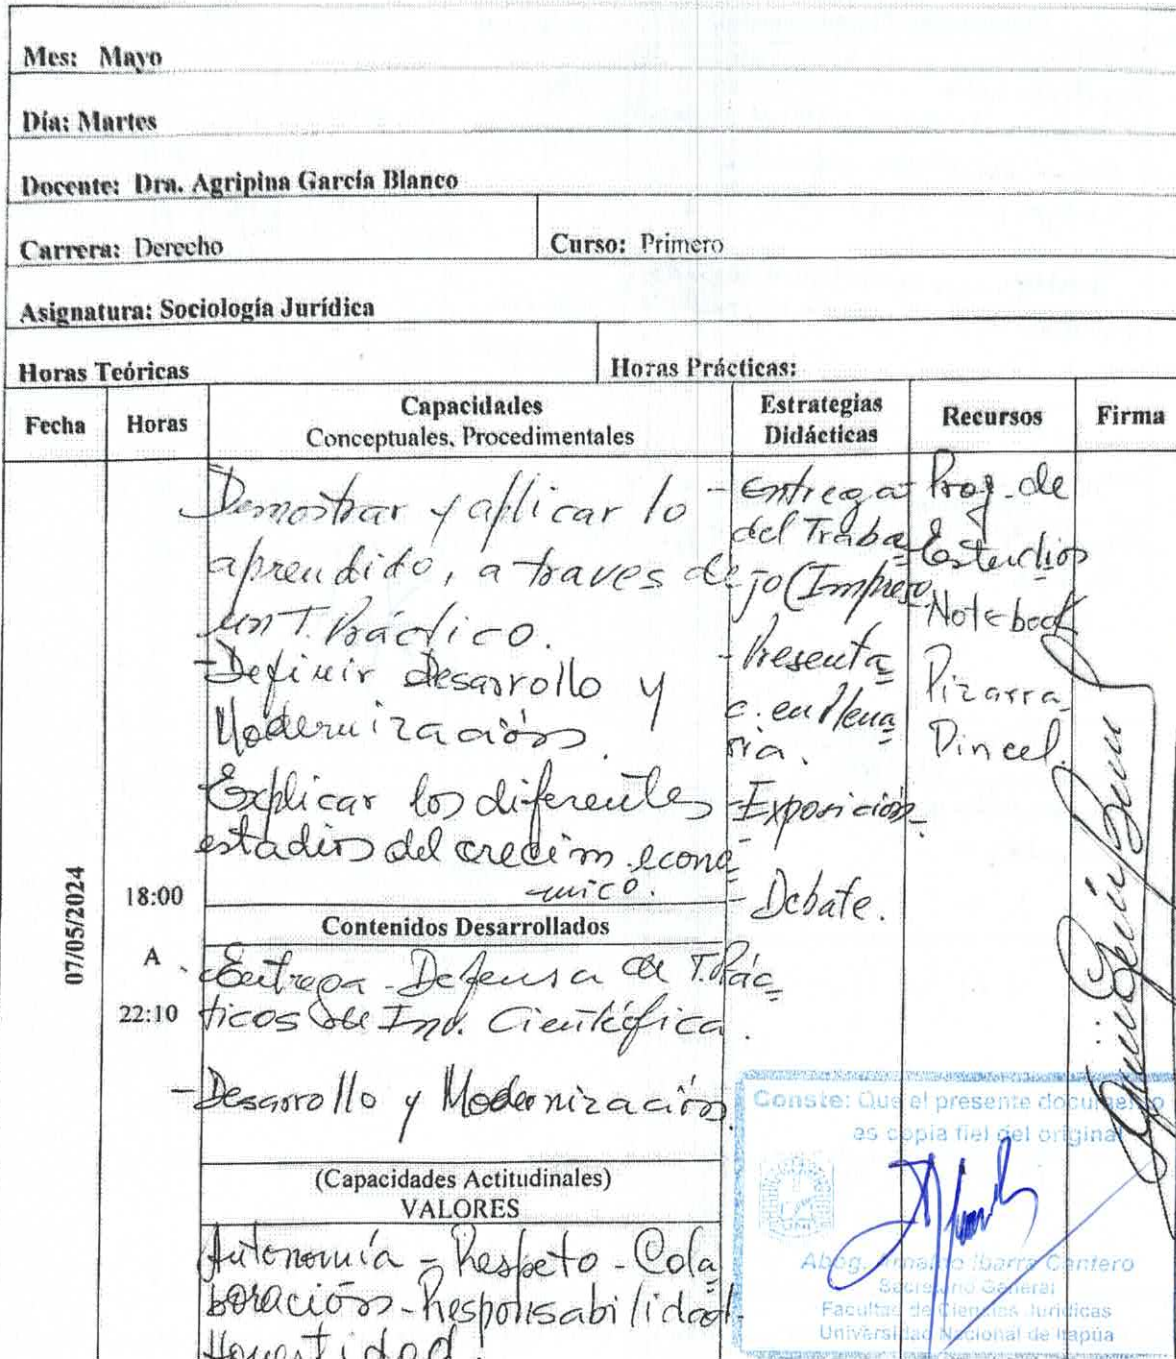 Mes: Mayo
Día: Martes
Docente: Dra. Agripina García Blanco
Carrera: Derecho
Curso: Primero
Asignatura: Sociología Jurídica
Horas Teóricas
Horas Prácticas:
Fecha
Horas
Capacidades
Conceptuales, Procedimentales
Estrategias
Didácticas
Recursos
Firma
07/05/2024
18:00
A
22:10
Demostrar y aplicar lo
aprendido, a traves de
un T. Práctico.
- Definir desarrollo y
Modernización.
Explicar los diferentes
estadios del crecim. econó
mico.
- Entrega
del Traba
jo (Impreso
- Presenta
c. en Plena
ria.
- Exposición
- Debate.
Prog. de
Estudios
Notebook
Pizarra
Pincel.
Contenidos Desarrollados
- Entrega - Defensa de T. Prác
ticos de Inv. Científica.
- Desarrollo y Modernización.
(Capacidades Actitudinales)
VALORES
Autonomía - Respeto - Cola
boración - Responsabilidad -
Honestidad.
Conste: Que el presente documento
es copia fiel del original
Abog. Arnaldo Ibarra Cantero
Secretario General
Facultad de Ciencias Jurídicas
Universidad Nacional de Itapúa